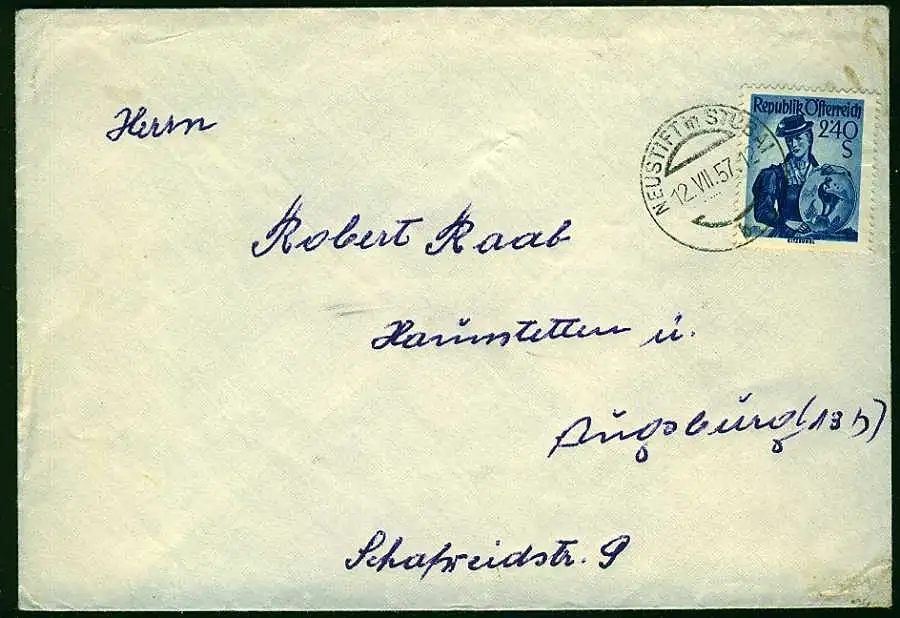 Herrn
Robert Raab
Haunstetten ü.
Augsburg (13 b)
Schafweidstr. 9
NEUSTIFT in STUBAI
12.VII.57
Republik Österreich
2'40
S